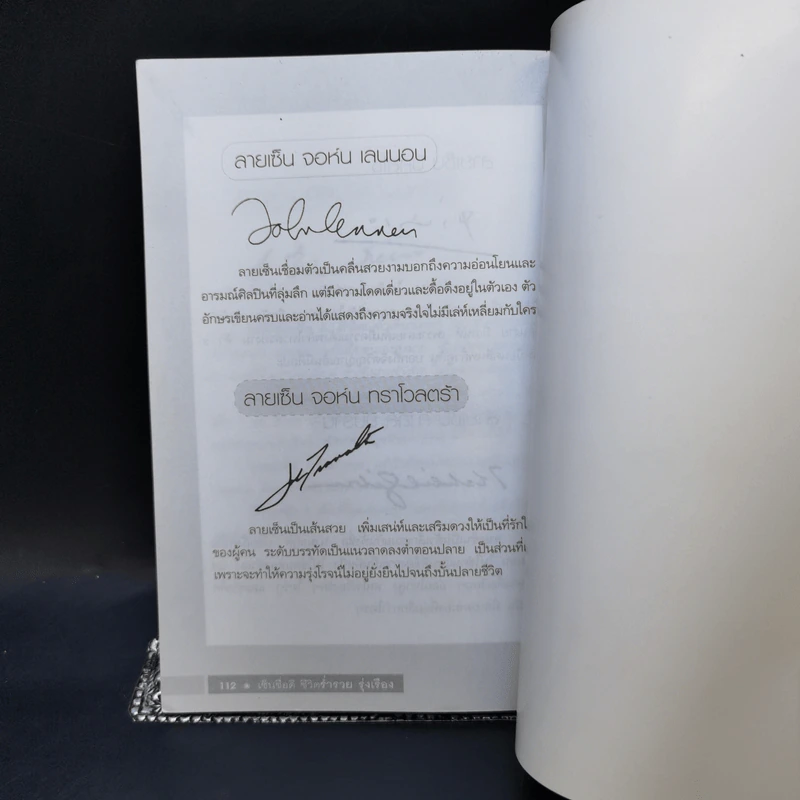 ลายเซ็น จอห์น เลนนอน
John Lennon
ลายเซ็นเชื่อมตัวเป็นคลื่นสวยงามบอกถึงความอ่อนโยนและ
อารมณ์ศิลปินที่ลุ่มลึก แต่มีความโดดเดี่ยวและดื้อดึงอยู่ในตัวเอง ตัว
อักษรเขียนครบและอ่านได้แสดงถึงความจริงใจไม่มีเล่ห์เหลี่ยมกับใคร
ลายเซ็น จอห์น ทราโวลตร้า
ลายเซ็นเป็นเส้นสวย เพิ่มเสน่ห์และเสริมดวงให้เป็นที่รักใ
ของผู้คน ระดับบรรทัดเป็นแนวลาดลงต่ำตอนปลาย เป็นส่วนที่เ
เพราะจะทำให้ความรุ่งโรจน์ไม่อยู่ยั่งยืนไปจนถึงบั้นปลายชีวิต
112 เซ็นชื่อดี ชีวิตร่ำรวย รุ่งเรือง